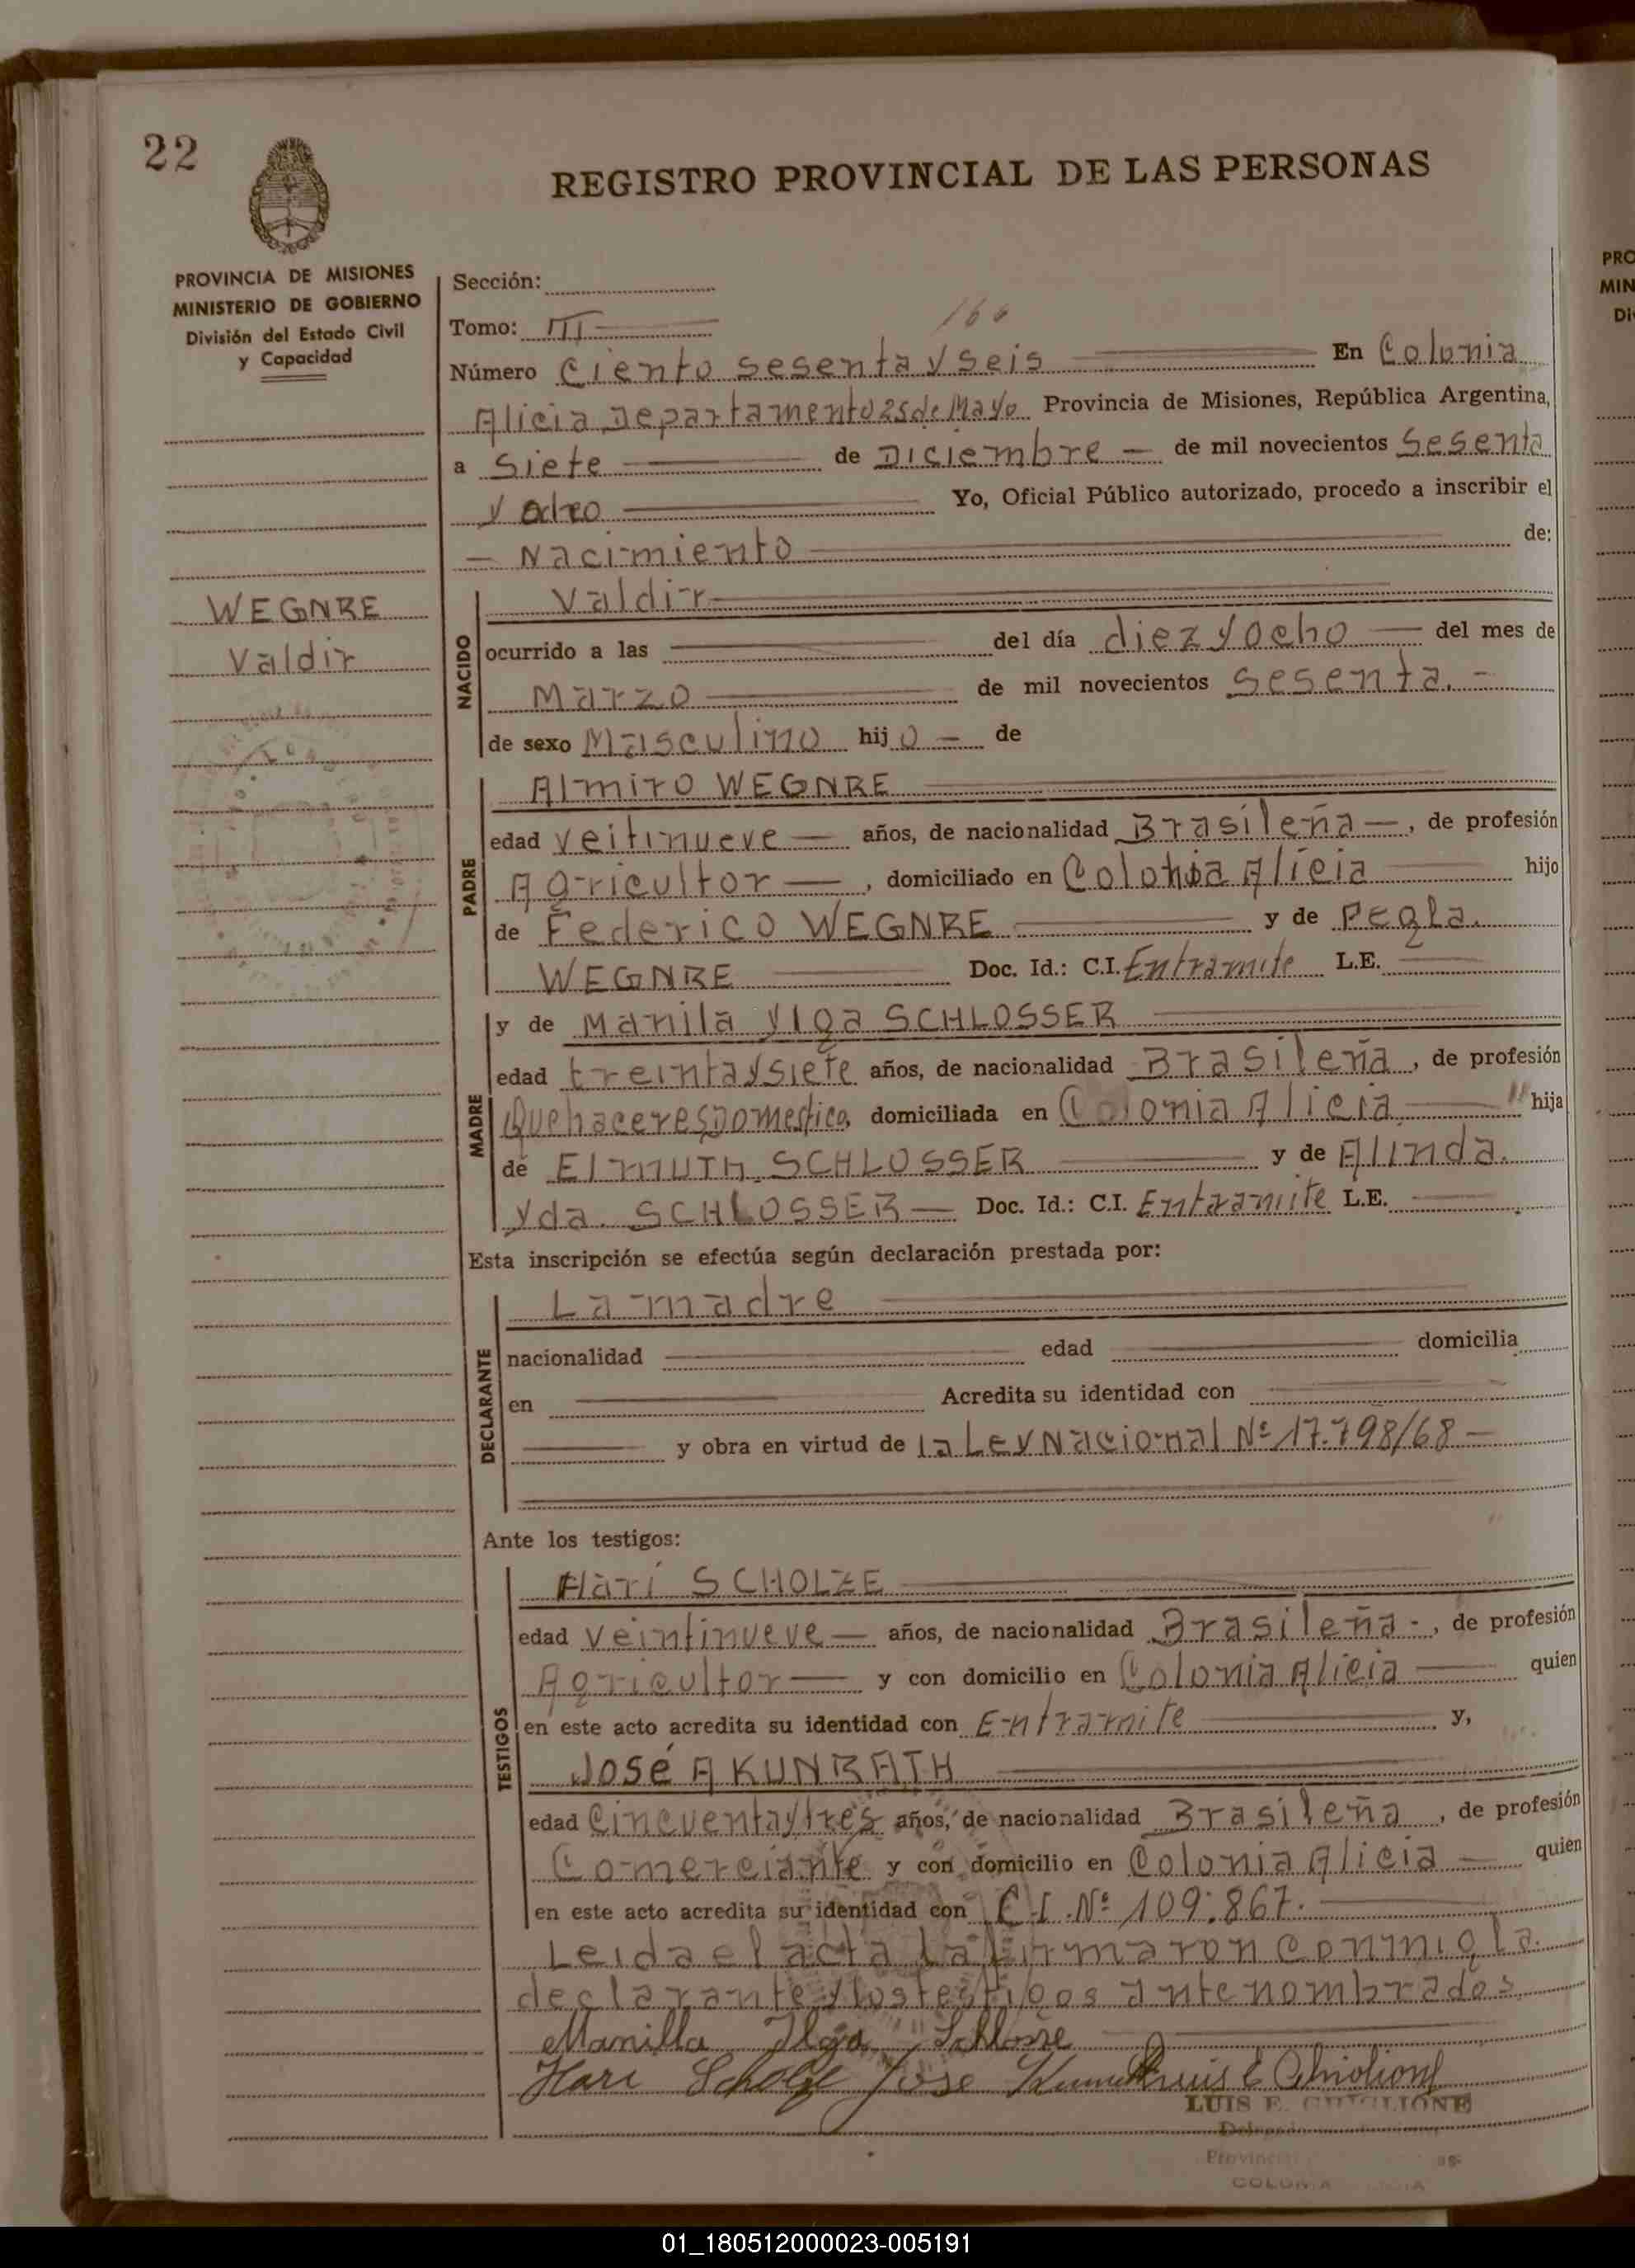 22
REGISTRO PROVINCIAL DE LAS PERSONAS
PROVINCIA DE MISIONES
MINISTERIO DE GOBIERNO
División del Estado Civil
y Capacidad
WEGNRE
Valdir
Sección:
Tomo: III
166
Número Ciento sesenta y seis En Colonia
Alicia Departamento 25 de Mayo Provincia de Misiones, República Argentina,
a Siete de Diciembre de mil novecientos Sesenta
y ocho Yo, Oficial Público autorizado, procedo a inscribir el
Nacimiento de:
NACIDO
Valdir
ocurrido a las del día diez y ocho del mes de
Marzo de mil novecientos Sesenta.
de sexo Masculino hijo de
PADRE
Almiro WEGNRE
edad veitinueve años, de nacionalidad Brasileña, de profesión
Agricultor, domiciliado en Colonia Alicia hijo
de Federico WEGNRE y de Pegla.
WEGNRE Doc. Id.: C.I. Entramite L.E.
MADRE
y de Manila Ylga SCHLOSSER
edad treinta y siete años, de nacionalidad Brasileña, de profesión
Quehaceres Domestico, domiciliada en Colonia Alicia hija
de Elmuth SCHLOSSER y de Alinda.
Yda. SCHLOSSER Doc. Id.: C.I. Entramite L.E.
Esta inscripción se efectúa según declaración prestada por:
DECLARANTE
La madre
nacionalidad edad domicilia
en Acredita su identidad con
y obra en virtud de la Ley Nacional Nº 17.798/68
Ante los testigos:
TESTIGOS
Hari SCHOLZE
edad veintinueve años, de nacionalidad Brasileña, de profesión
Agricultor y con domicilio en Colonia Alicia quien
en este acto acredita su identidad con Entramite y,
José A KUNRATH
edad Cincuenta y tres años, de nacionalidad Brasileña, de profesión
Comerciante y con domicilio en Colonia Alicia quien
en este acto acredita su identidad con C.I. Nº 109.867.
Leida el acta la firmaron conmigo la
declarante y los testigos antenombrados
Manilla Ilga Schlosre
Hari Scholze Jose Luis E Ghiglione
LUIS E. GHIGLIONE
COLONIA
01_180512000023-005191